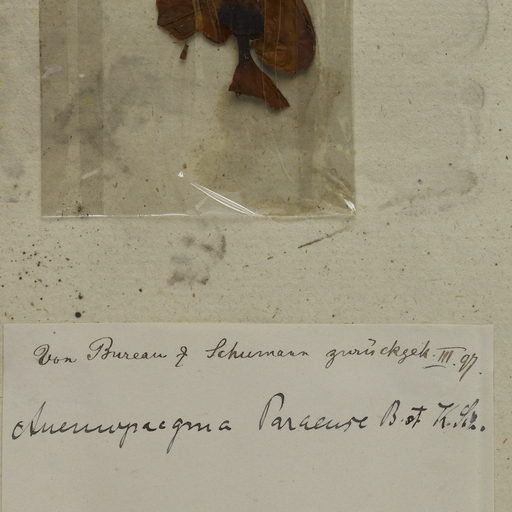 Von Bureau & Schumann zurückgek. III 97.
Anemopaegma Paraense B. et K. Sch.